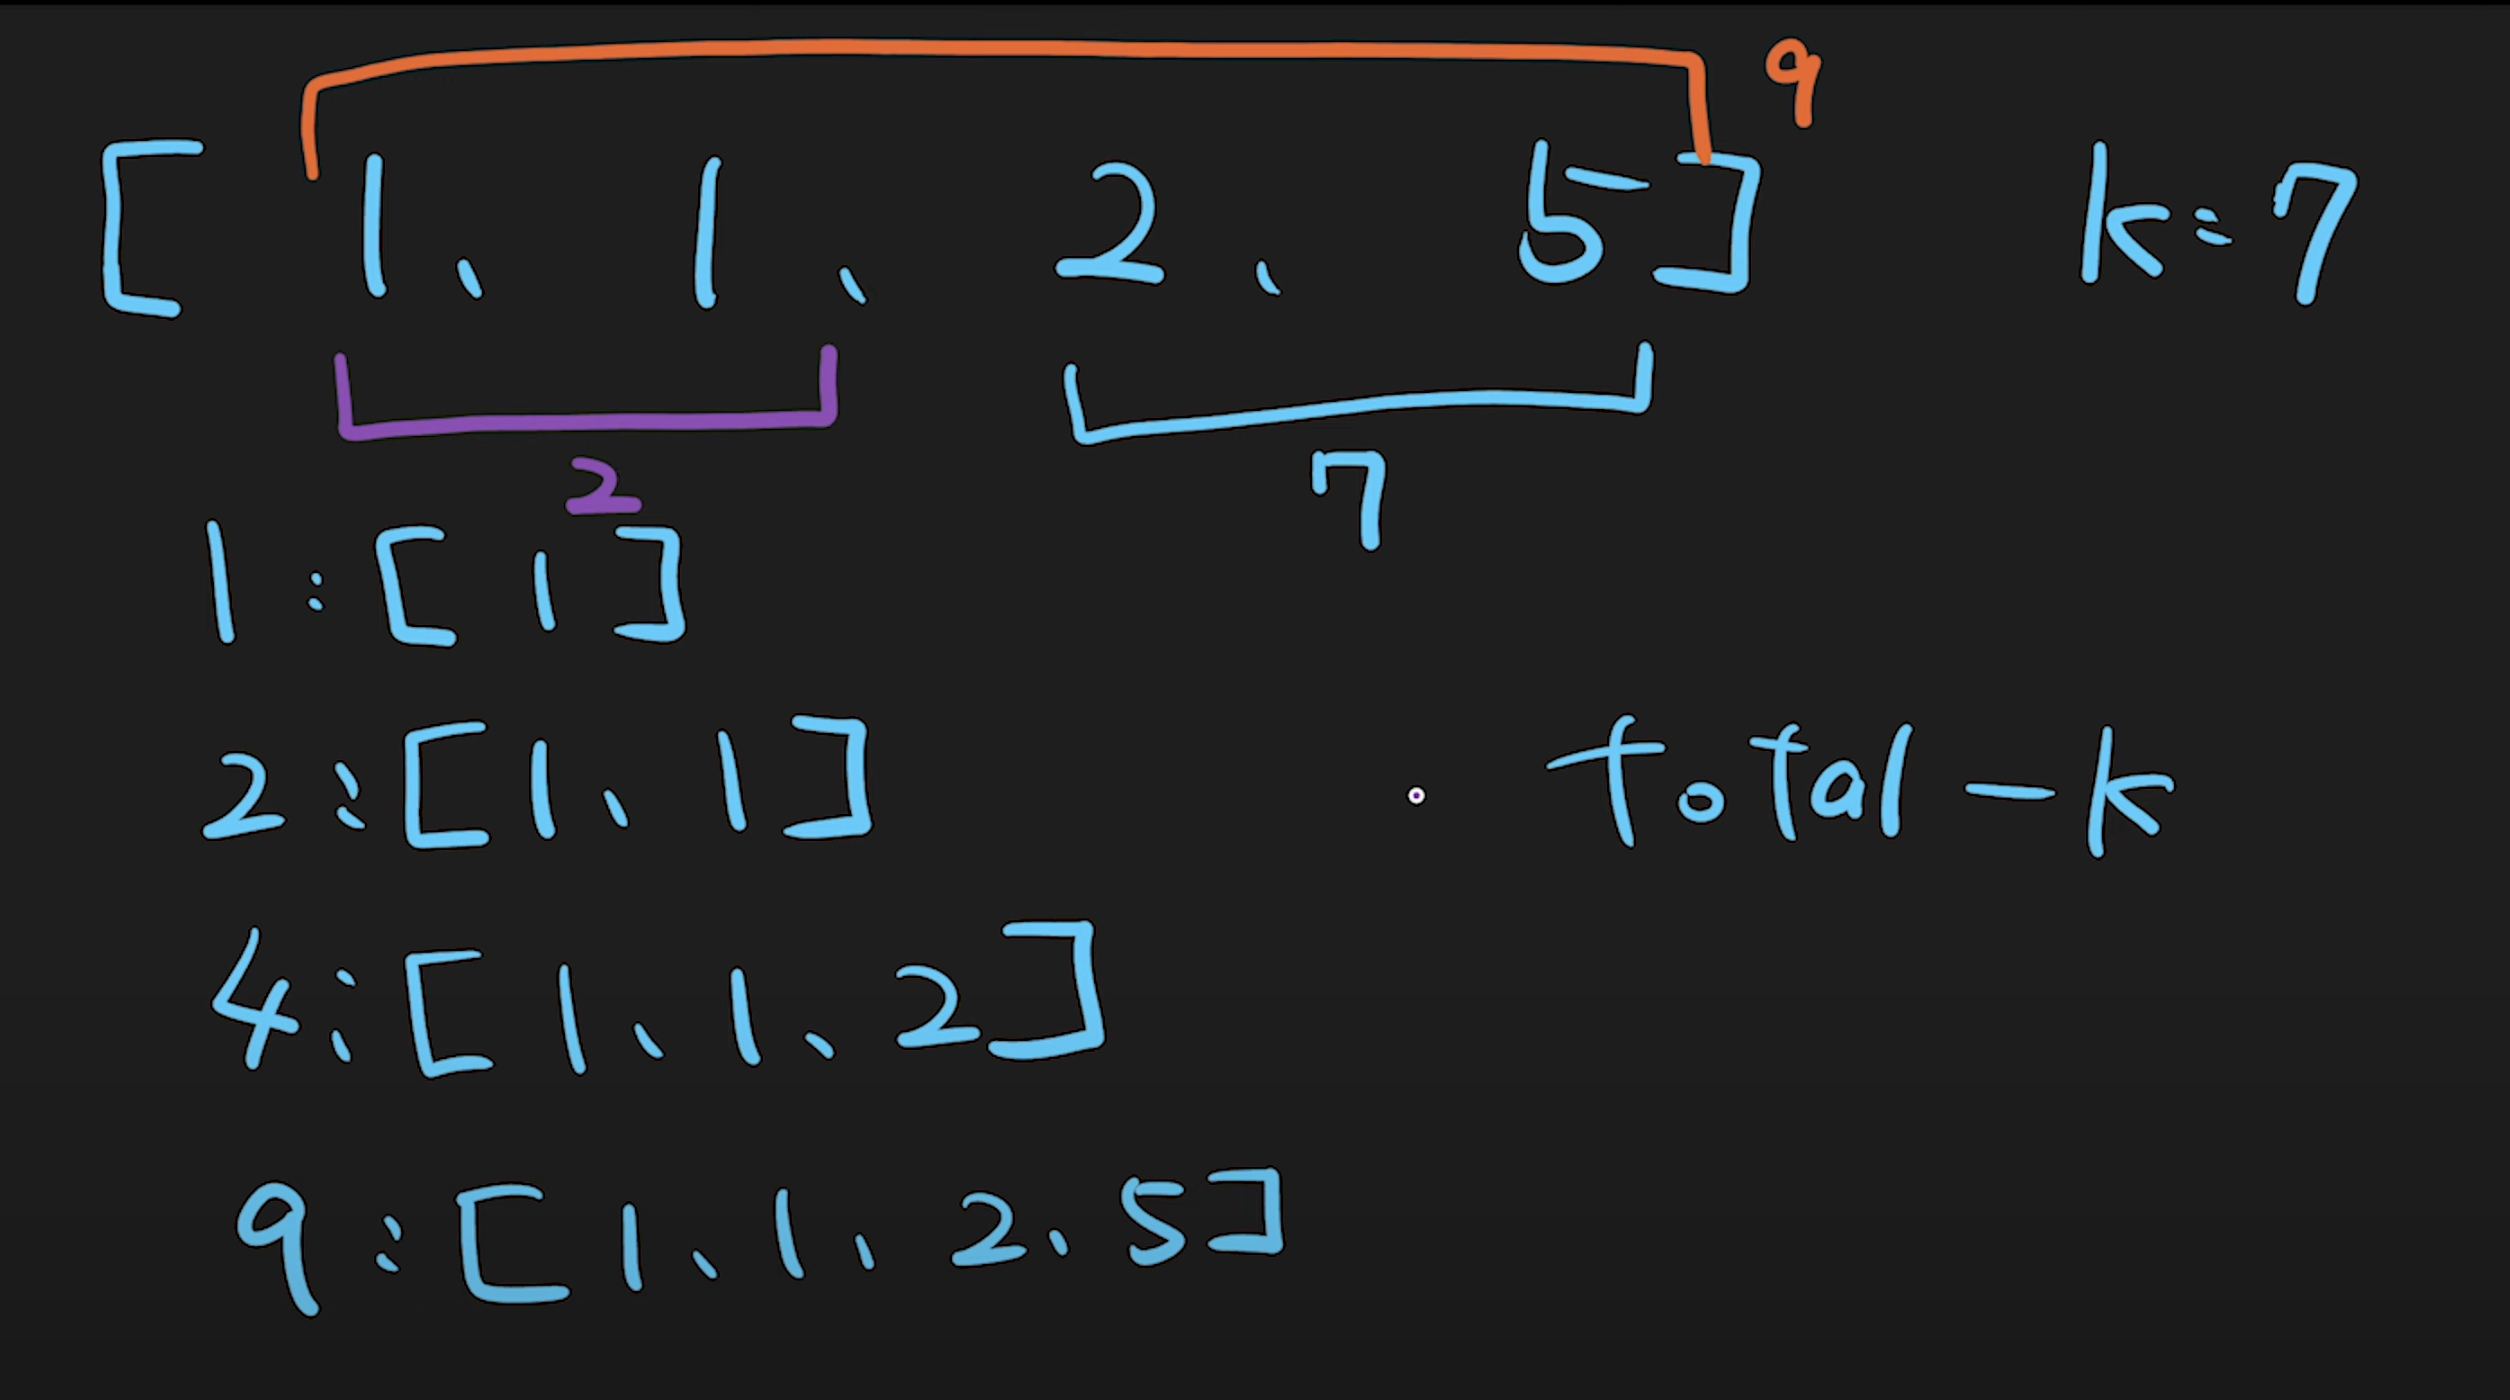 9
[ 1, 1, 2, 5] k=7
2 7
1: [ 1 ]
2: [1, 1]
total-k
4: [ 1, 1, 2]
9: [ 1, 1, 2, 5]